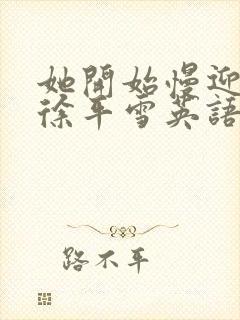 她開始慢迎
徐平雪英語
路不平